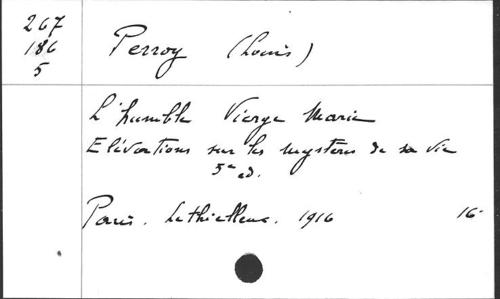 267
186
5
Perroy (Louis)
L'humble Vierge Marie
Elévations sur les mystères de sa vie
5e ed.
Paris. Lethielleux. 1916 16-